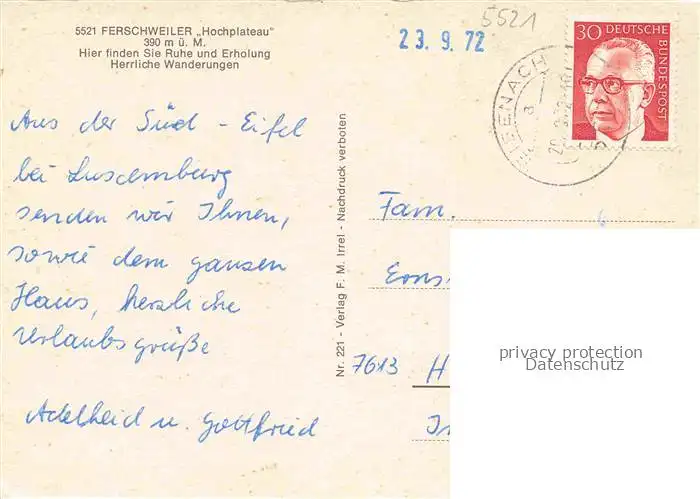 5521 FERSCHWEILER „Hochplateau"
390 m ü. M.
Hier finden Sie Ruhe und Erholung
Herrliche Wanderungen
23.9.72
5521
30 DEUTSCHE
BUNDESPOST
Aus der Süd - Eifel
bei Luxemburg
senden wir Ihnen,
sowie dem ganzen
Haus, herzliche
Urlaubsgrüße
Adelheid u. Gottfried
Nr. 221 - Verlag F. M. Irrel - Nachdruck verboten
Fam.
7613 H
privacy protection
Datenschutz